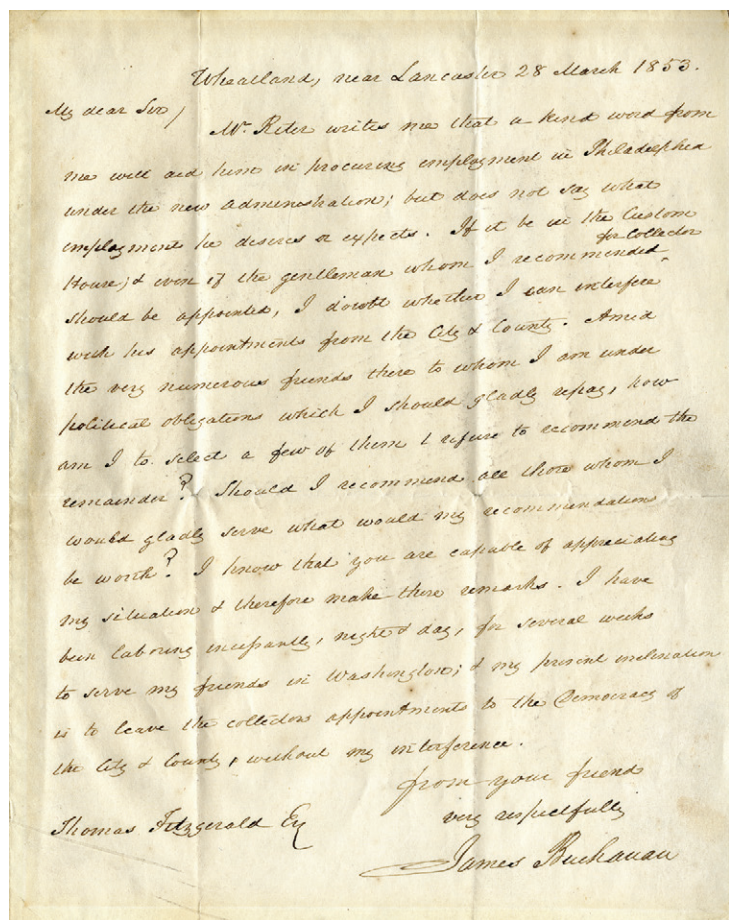 Wheatland, near Lancaster 28 March 1853.
My dear Sir,
Mr. Riter writes me that a kind word from
me will aid him in procuring employment in Philadelphia
under the new administration; but does not say what
employment he desires or expects. If it be in the Custom
House; & even if the gentleman whom I recommended
for Collector
should be appointed, I doubt whether I can interfere
with his appointments from the City & County. Amid
the very numerous friends there to whom I am under
political obligations which I should gladly repay, how
am I to select a few of them & refuse to recommend the
remainder? Should I recommend all those whom I
would gladly serve what would my recommendations
be worth? I know that you are capable of appreciating
my situation & therefore make these remarks. I have
been labouring incessantly, night & day, for several weeks
to serve my friends in Washington; & my present inclination
is to leave the collectors appointments to the Democracy of
the City & County, without my interference.
from your friend
very respectfully
James Buchanan
Thomas Fitzgerald Esq